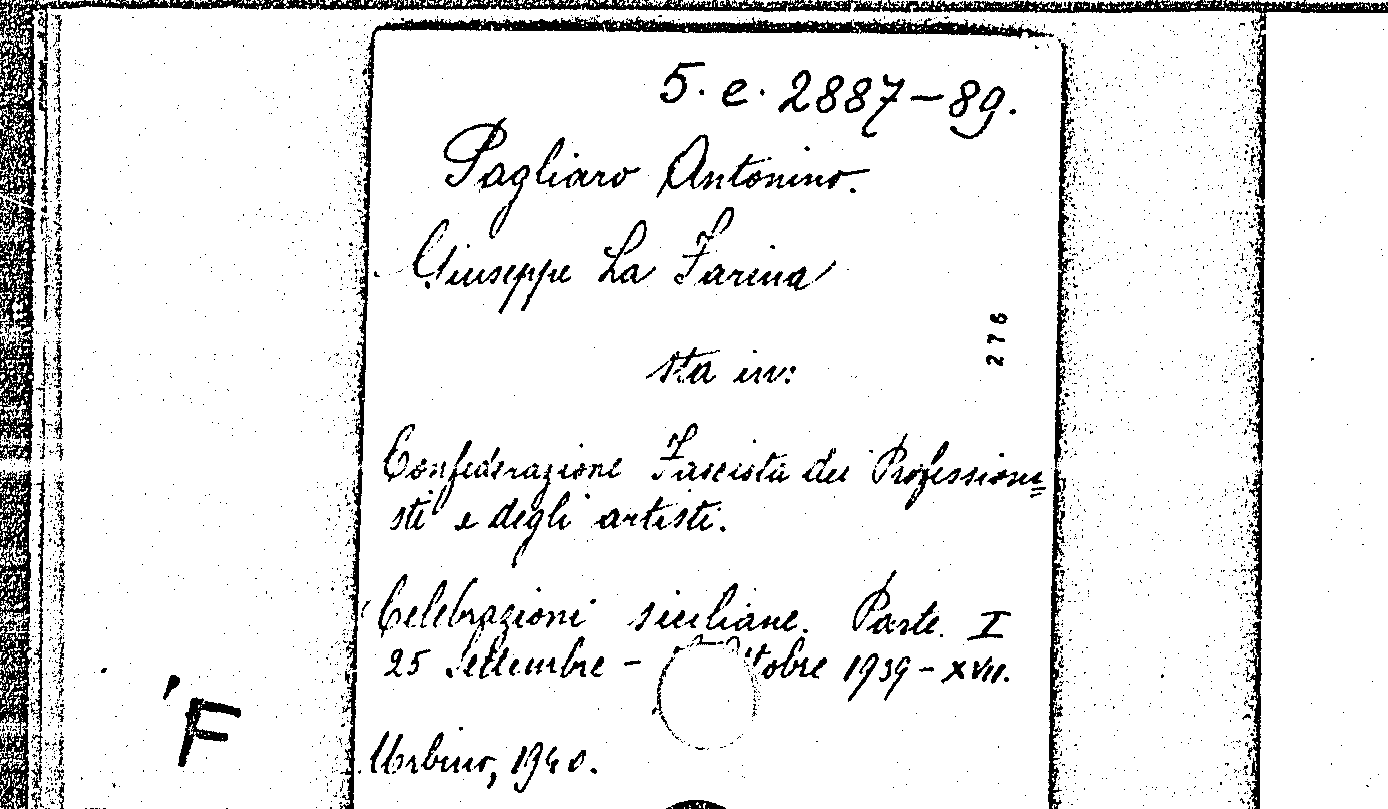 5. e. 2887-89.
Pagliaro Antonino.
Giuseppe La Farina
276
sta in:
Confederazione Fascista dei Professioni=
sti e degli artisti.
Celebrazioni siciliane. Parte I
25 Settembre - ttobre 1939 - XVII.
'F
Urbino, 1940.